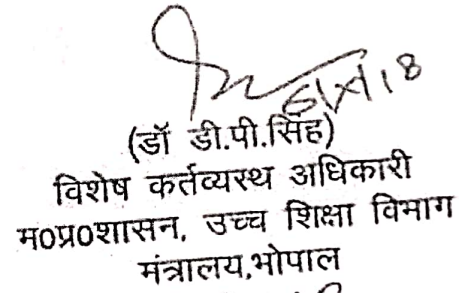 (डॉ डी.पी.सिंह)
विशेष कर्तव्यस्थ अधिकारी
म0प्र0शासन, उच्च शिक्षा विभाग
मंत्रालय,भोपाल